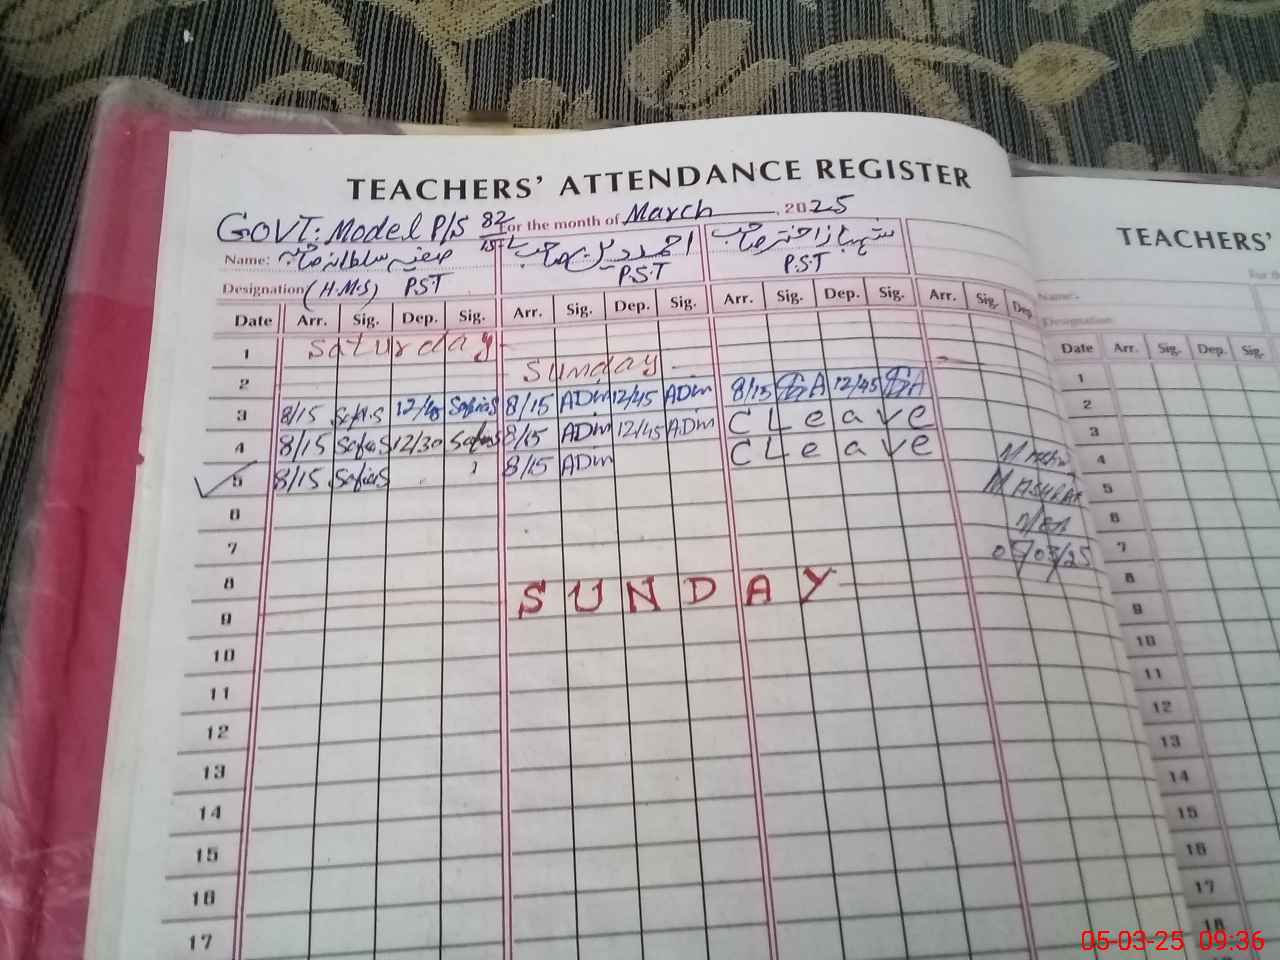 TEACHERS' ATTENDANCE REGISTER
GOVT: Model P/S 82/15-L For the month of March 2025
Name: صفیہ سلطانہ صاحبہ احمد دین صاحب شہباز اختر صاحب
Designation (H.M.S) PST P.S.T P.S.T
Date Arr. Sig. Dep. Sig. Arr. Sig. Dep. Sig. Arr. Sig. Dep. Sig. Arr. Sig. Dep.
1 Saturday
2 Sunday
3 8/15 8/15 ADm 12/45 ADm 8/15 12/45
4 8/15 12/30 8/15 ADm 12/45 ADm C Leave
5 8/15 8/15 ADm C Leave
6
7
8
9 SUNDAY
10
11
12
13
14
15
16
17
05/03/25
TEACHERS'
For the
Name:
Designation:
Date Arr. Sig. Dep. Sig.
1
2
3
4
5
6
7
8
9
10
11
12
13
14
15
16
17
18
05-03-25 09:36